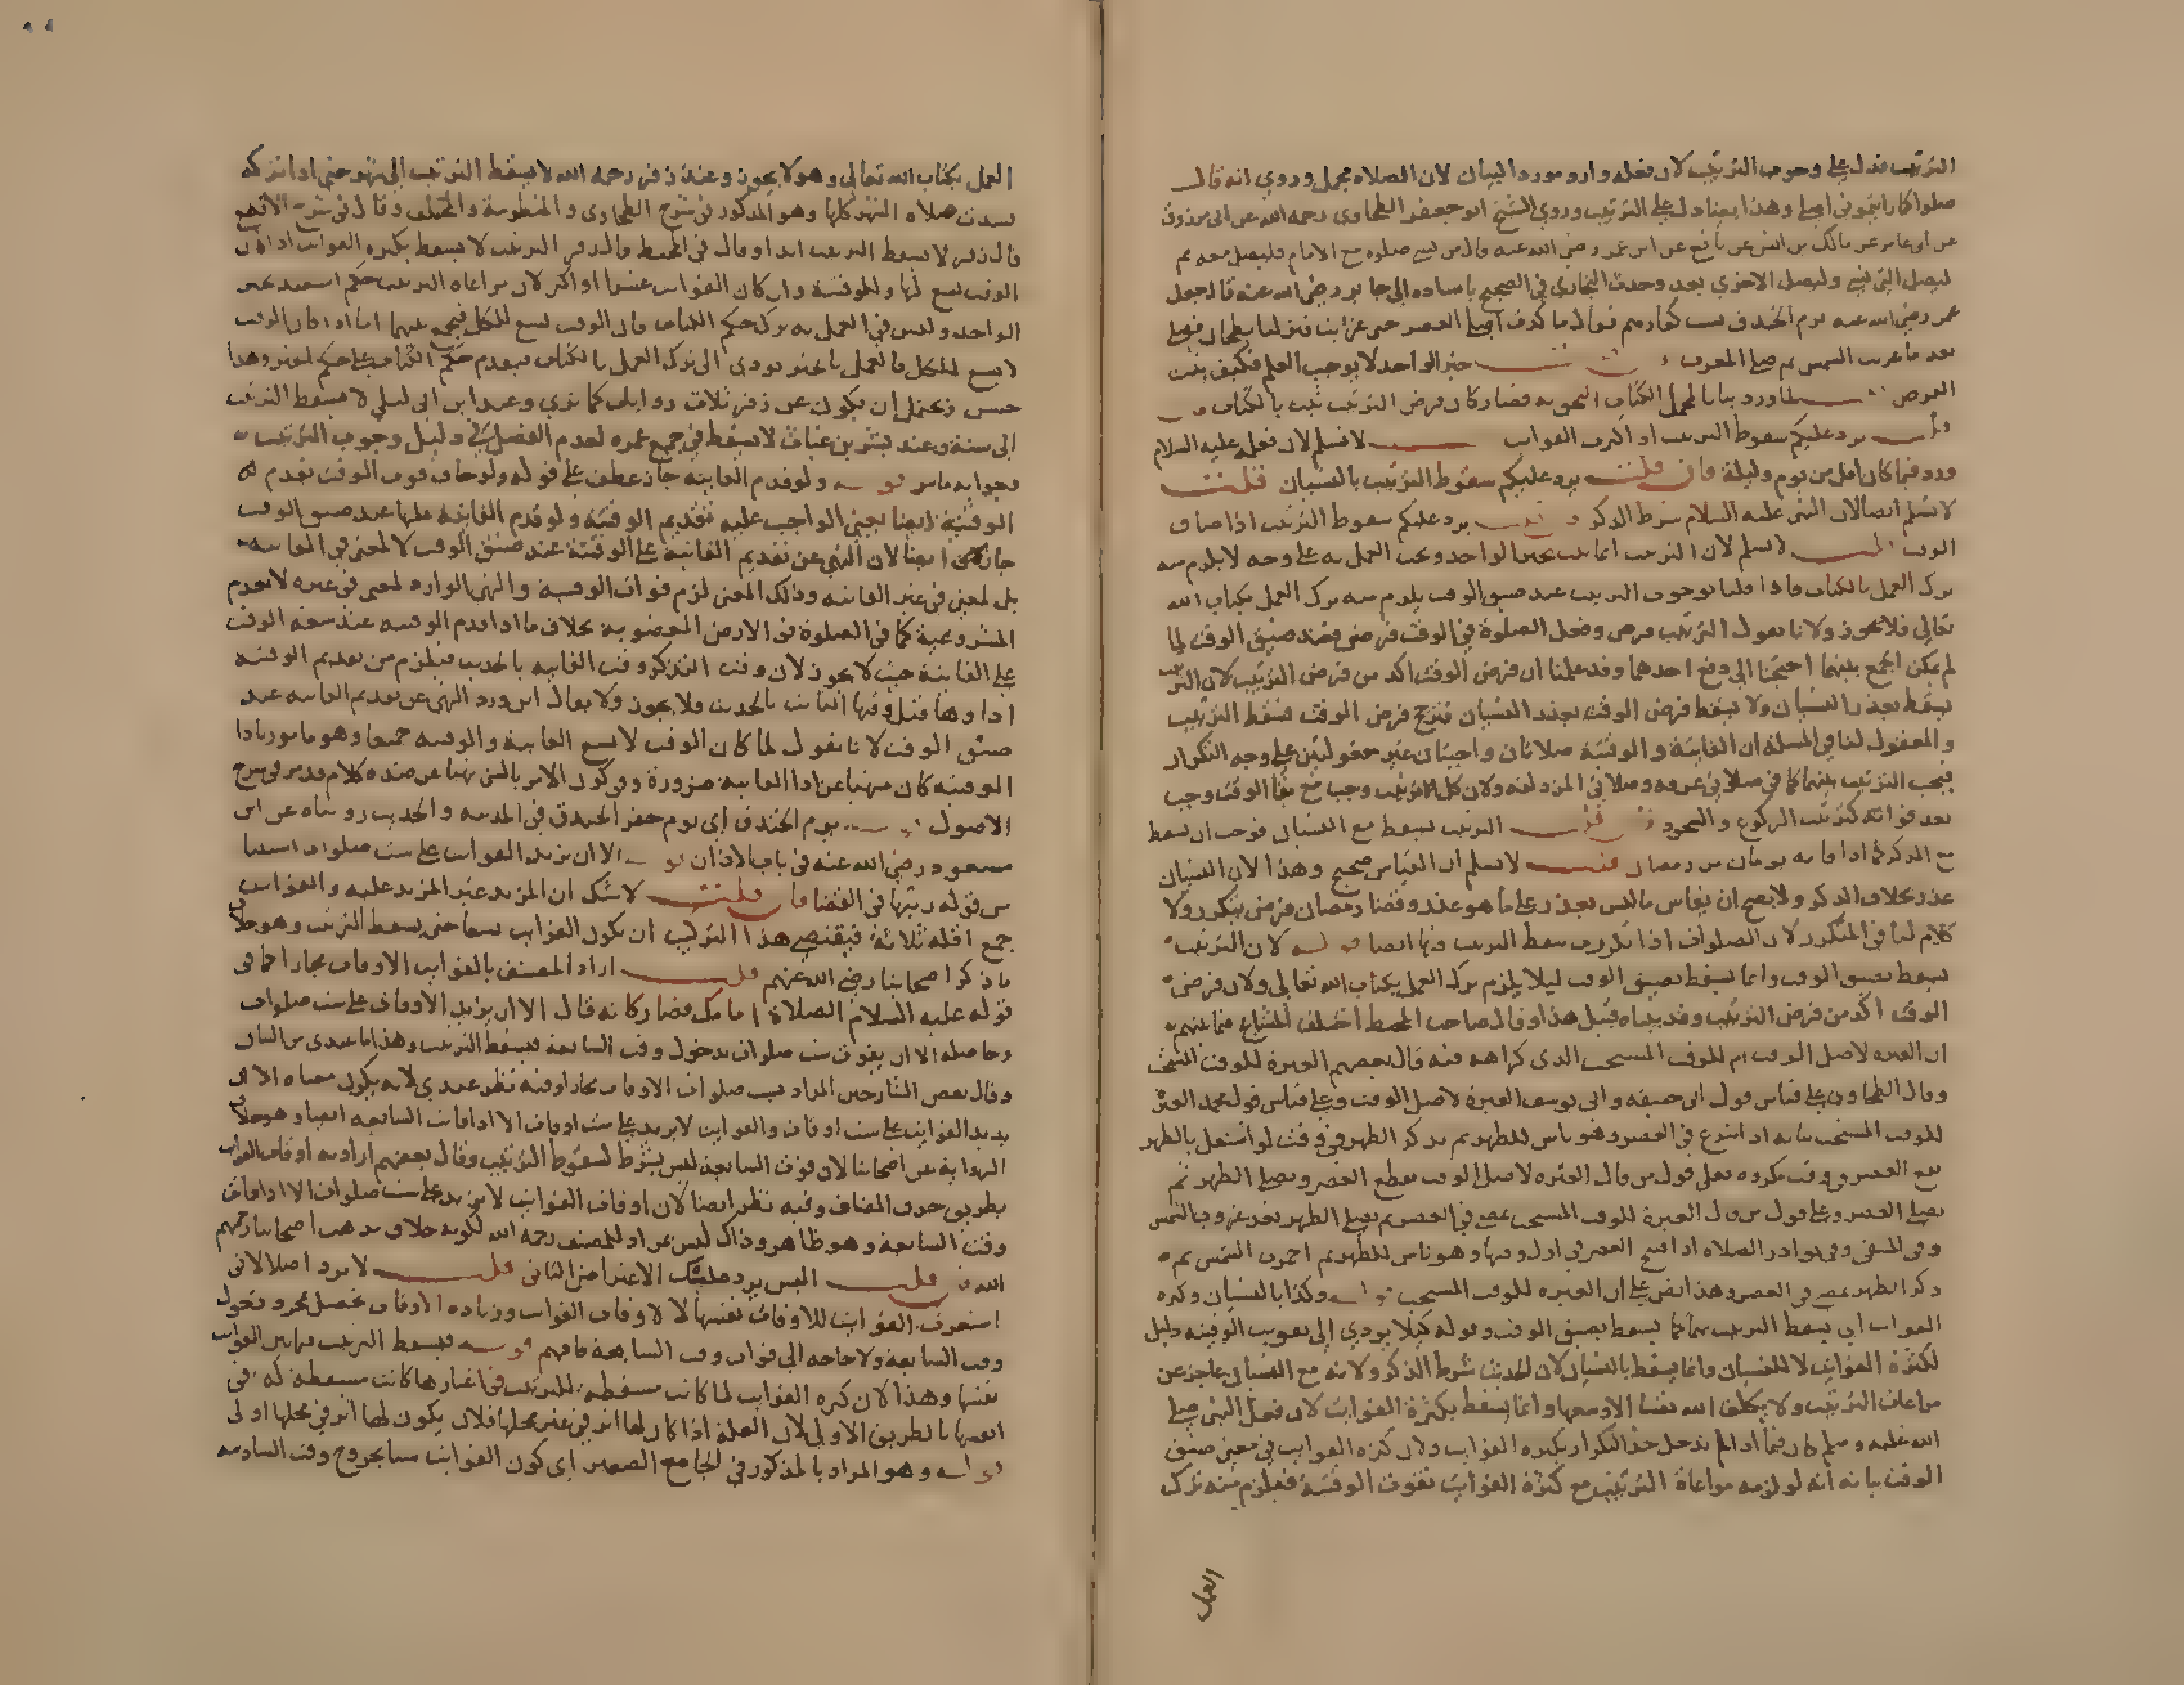 الترتيب فدل على وجوب الترتيب لان فعله وارد مورد البيان لان الصلاة مجمل وروي انه قال
صلوا كما رايتموني اصلي وهذا ايضا دل على الترتيب وروي الشيخ ابو جعفر الطحاوي رحمه الله عن ابن مرزوق
عن ابي عامر عن مالك بن انس عن نافع عن ابن عمر رضي الله عنه قال من نسي صلوه مع الامام فليصل معه ثم
ليصل التي نسي وليصل الاخري بعد وحدث البخاري في الصحيح باسناده الي جابر رضي الله عنه قال جعل
عمر رضي الله عنه يوم الخندق يسب كفارهم فقال ما كدت اصلي العصر حتى غربت فنزلنا بطحان فصلى
بعد ما غربت الشمس ثم صلى المغرب خبر الواحد لا يوجب العلم فكيف يثبت
الفرض لما ورد بيانا لمجمل الكتاب التحق به فصار كان فرض الترتيب ثبت بالكتاب
يرد عليكم سقوط الترتيب اذا كثرت الفوايت لا نسلم لان فعله عليه السلام
ورد فيما كان اقل من يوم وليلة فان قلت يرد عليكم سقوط الترتيب بالنسيان قلت
لا نسلم ايضا لان النبي عليه السلام شرط الذكر يرد عليكم سقوط الترتيب اذا ضاق
الوقت لا نسلم لان الترتيب انما ثبت بخبر الواحد ويجب العمل به على وجه لا يلزم منه
ترك العمل بالكتاب فاذا قلنا بوجوب الترتيب عند ضيق الوقت يلزم منه ترك العمل بكتاب الله
تعالى فلا يجوز ولانا نقول الترتيب فرض وفعل الصلوة في الوقت فرض فعند ضيق الوقت لما
لم يمكن الجمع بينهما احتجنا الي دفع احدهما وقد علمنا ان فرض الوقت اكد من فرض الترتيب لان الترتيب
يسقط بعذر النسيان ولا يسقط فرض الوقت بعذر النسيان فترجح فرض الوقت فسقط الترتيب
والمعقول لنا في المسلة ان الفايتة والوقتية صلاتان واجبتان غير معقولتين على وجه التكرار
فيجب الترتيب بينهما كما في صلاتي عرفه وصلاتي المزدلفه ولان كل ترتيب وجب مع بقا الوقت وجب
بعد فواته كترتيب الركوع والسجود الترتيب يسقط مع النسيان فوجب ان يسقط
مع الذكر كما اذا فاته يومان من رمضان قلت لا نسلم ان القياس صحيح وهذا لان النسيان
عذر بخلاف الذكر ولا يصح ان يقاس ما ليس بعذر على ما هو عذر وقضا رمضان فرض يتكرر ولا
كلام لنا في المتكرر لان الصلوات اذا تكررت سقط الترتيب فيها ايضا قوله لان الترتيب
يسقط بضيق الوقت وانما يسقط بضيق الوقت ليلا يلزم ترك العمل بكتاب الله تعالى ولان فرض
الوقت اكد من فرض الترتيب وقد بيناه قبيل هذا وقال صاحب المحيط اختلف المشايخ فيما بينهم
ان العبره لاصل الوقت ام للوقت المستحب الذي لا كراهه فيه قال بعضهم العبرة للوقت المستحب
وقال الطحاوي على قياس قول ابي حنيفه وابي يوسف العبرة لاصل الوقت وعلى قياس قول محمد العبرة
للوقت المستحب بيانه اذا شرع في العصر وهو ناس للظهر ثم تذكر الظهر في وقت لو اشتغل بالظهر
يقع العصر في وقت مكروه فعلى قول من قال العبره لاصل الوقت يقطع العصر ويصلي الظهر ثم
يصلي العصر وعلى قول من قال العبرة للوقت المستحب يمضي في العصر ثم يصلي الظهر بعد غروب الشمس
وفي المنتقى وفي نوادر الصلاه اذا افتتح العصر في اول وقتها وهو ناس للظهر ثم احمرت الشمس ثم
ذكر الظهر يمضي في العصر وهذا نص على ان العبره للوقت المستحب قوله وكذا بالنسيان وكثره
الفوايت اي يسقط الترتيب بهما كما يسقط بضيق الوقت وقوله كيلا يودي الى تفويت الوقتيه دليل
لكثرة الفوايت لا للنسيان وانما يسقط بالنسيان لان الحديث شرط الذكر ولانه مع النسيان عاجز عن
مراعات الترتيب ولا يكلف الله نفسا الا وسعها وانما يسقط بكثرة الفوايت لان فعل النبي صلى
الله عليه وسلم كان فيما اذا لم تدخل حد التكرار بكثره الفوايت ولان كثره الفوايت في معنى ضيق
الوقت بيانه انه لو لزمه مراعاة الترتيب مع كثرة الفوايت تفوت الوقتية فيلزم منه ترك
العمل
العمل بكتاب الله تعالى وهو لا يجوز وعند زفر رحمه الله لا يسقط الترتيب الى شهر حتى اذا تركه
فسدت صلاه الشهر كلها وهو المذكور في شرح الطحاوي والمنظومة والمختلف وقال في شرح الاقطع
قال زفر لا يسقط الترتيب ابدا وقال في المحيط قال زفر الترتيب لا يسقط بكثره الفوايت اذا كان
الوقت يسع لها وللوقتية وان كان الفوايت عشرا او اكثر لان مراعاه الترتيب حكم استفيد بخبر
الواحد وليس في العمل به ترك حكم الكتاب فان الوقت يسع للكل فيجمع بينهما اما اذا كان الوقت
لا يسع للكل فالعمل بالخبر يودي الى ترك العمل بالكتاب فيقدم حكم الكتاب على حكم الخبر وهذا
حسن فيحتمل ان يكون عن زفر ثلاث روايات كما تري وعند ابن ابي ليلي لا يسقط الترتيب
الى سنة وعند بشر بن غياث لا يسقط في جميع عمره لعدم الفصل في دليل وجوب الترتيب
وجوابه ما مر قوله ولو قدم الفايته جاز عطف على قوله ولو خاف فوت الوقت تقدم
الوقتية ايضا يعني الواجب عليه تقديم الوقتية ولو قدم الفايتة عليها عند ضيق الوقت
جاز ايضا لان النهي عن تقديم الفايتة على الوقتية عند ضيق الوقت لا لمعنى في الفايته
بل لمعنى في غير الفايته وذلك المعنى لزم فوات الوقتية والنهي الوارد لمعنى في غيره لا يعدم
المشروعية كما في الصلوة في الارض المغصوبة بخلاف ما اذا قدم الوقتية عند سعة الوقت
على الفايتة حيث لا يجوز لان وقت التذكر وقت الفايتة بالحديث فيلزم من تقديم الوقتيه
اداوها قبل وقتها الثابت بالحديث ولا يجوز ولا يقال اين ورد النهي عن تقديم الفايته عند
ضيق الوقت لانا نقول لما كان الوقت لا يسع الفايتة والوقتيه جميعا وهو مامور باداء
الوقتيه كان منهيا عن ادا الفايتة ضرورة وفي كون الامر بالشي نهيا عن ضده كلام قد مر في شرح
الاصول قوله يوم الخندق اي يوم حفر الخندق في المدينه والحديث رويناه عن ابن
مسعود رضي الله عنه في باب الاذان قوله الا ان يزيد الفوايت على ست صلوات استثنا
من قوله رتبها في القضا فان قلت لا شك ان المزيد غير المزيد عليه والفوايت
جمع اقله ثلاثة فيقتضي هذا التركيب ان يكون الفوايت تسعا حتى يسقط الترتيب وهو خلاف
ما ذكر اصحابنا رضي الله عنهم قلت اراد المصنف بالفوايت الاوقات مجازا كما في
قوله عليه السلام الصلاة امامك فصار كانه قال الا ان يزيد الاوقات على ست صلوات
وحاصله الا ان يفوت ست صلوات بدخول وقت السابعة فيسقط الترتيب وهذا ما عندي من البيان
وقال بعض الشارحين المراد بست صلوات الاوقات مجازا وفيه نظر عندي لانه يكون معناه الا ان
يزيد الفوايت على ست اوقات والفوايت لا يزيد على ست اوقات الا اذا فاتت السابعه ايضا وهو خلاف
الرواية عن اصحابنا لان فوت السابعة ليس بشرط لسقوط الترتيب وقال بعضهم اراد به اوقات الفوايت
بطريق حذف المضاف وفيه نظر ايضا لان اوقات الفوايت لا يزيد على ست صلوات الا اذا فات
وقت السابعة وهو ظاهر وذاك ليس بمراد للمصنف رحمه الله لكونه خلاف مذهب اصحابنا رحمهم
الله فان قلت اليس يرد عليك الاعتراض الثاني قلت لا يرد اصلا لاني
استعرت الفوايت للاوقات نفسها لا لاوقات الفوايت وزياده الاوقات تحصل بمجرد دخول
وقت السابعة ولا حاجه الى فوات وقت السابعة فافهم قوله فيسقط الترتيب فيما بين الفوايت
نفسها وهذا لان كثره الفوايت لما كانت مسقطه للترتيب في اغيارها كانت مسقطه له في
انفسها بالطريق الاولى لان العلة اذا كان لها اثر في غير محلها فلان يكون لها اثر في محلها اولى
قوله وهو المراد بالمذكور في الجامع الصغير اي كون الفوايت ستا بخروج وقت السادسه